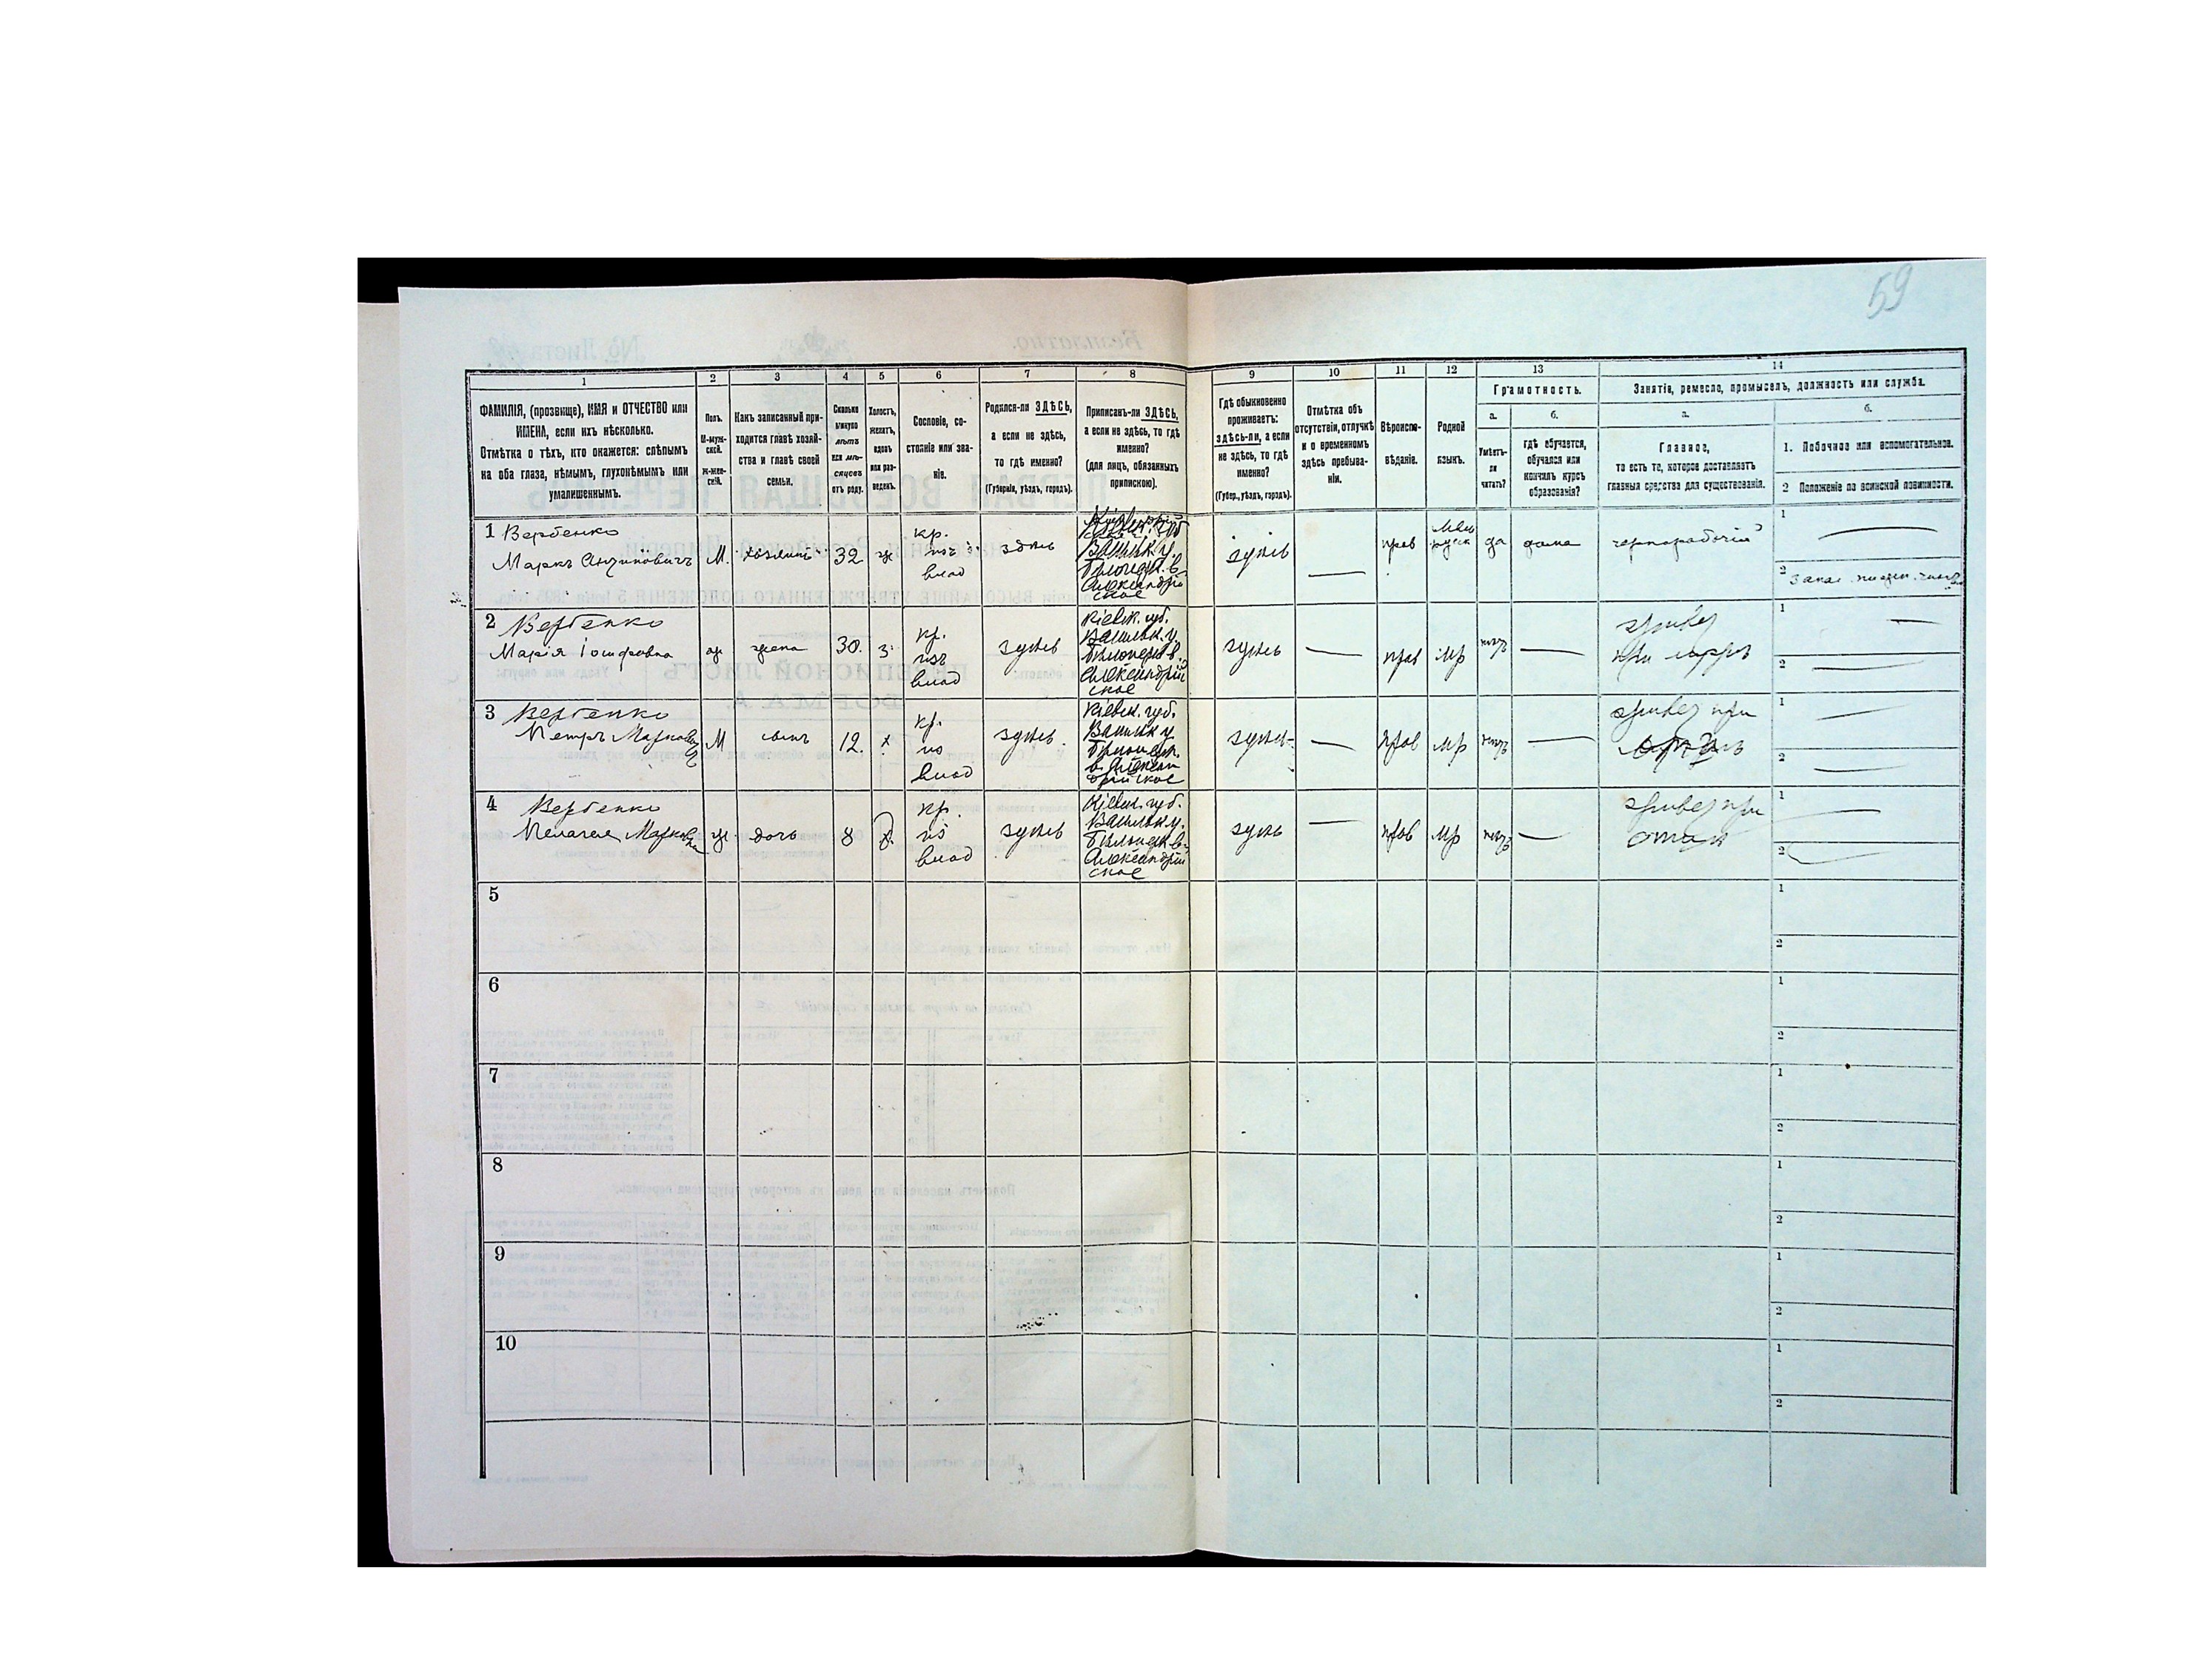 59
1
2
3
4
5
6
7
8
9
10
11
12
13
14
ФАМИЛІЯ, (прозвище), ИМЯ и ОТЧЕСТВО или
ИМЕНА, если ихъ нѣсколько.
Отмѣтка о тѣхъ, кто окажется: слѣпымъ
на оба глаза, нѣмымъ, глухонѣмымъ или
умалишеннымъ.
Полъ.
М-муж-
ской.
Ж-жен-
скій.
Какъ записанный при-
ходится главѣ хозяй-
ства и главѣ своей
семьи.
Сколько
минуло
лѣтъ
или мѣ-
сяцевъ
отъ роду.
Холостъ,
женатъ,
вдовъ
или раз-
веденъ.
Сословіе, со-
стояніе или зва-
ніе.
Родился-ли ЗДѢСЬ,
а если не здѣсь,
то гдѣ именно?
(Губернія, уѣздъ, городъ).
Приписанъ-ли ЗДѢСЬ,
а если не здѣсь, то гдѣ
именно?
(для лицъ, обязанныхъ
припискою).
Гдѣ обыкновенно
проживаетъ:
здѣсь-ли, а если
не здѣсь, то гдѣ
именно?
(Губер., уѣздъ, городъ).
Отмѣтка объ
отсутствіи, отлучкѣ
и о временномъ
здѣсь пребыва-
ніи.
Вѣроиспо-
вѣданіе.
Родной
языкъ.
Грамотность.
а.
Умѣетъ-
ли
читать?
б.
гдѣ обучается,
обучался или
кончилъ курсъ
образованія?
Занятіе, ремесло, промыселъ, должность или служба.
а.
Главное,
то есть то, которое доставляетъ
главныя средства для существованія.
б.
1. Побочное или вспомогательное.
2 Положеніе по воинской повинности.
1 Вербенко
Маркъ
М.
хозяинъ
32
ж
кр.
изъ
влад
здѣсь
Кіевск. губ
Васильк. у.
Александрій
ское
здѣсь
прав
да
дома
чернорабочій
1
2
2 Вербенко
Марія Іосифовна
ж
жена
30.
з
кр.
изъ
влад
здѣсь
Кіевск. губ.
Васильк. у.
Александрій
ское
здѣсь
прав
мр
при
1
2
3 Вербенко
Петръ Марковичъ
М
сынъ
12.
х
кр.
из
влад
здѣсь.
Кіевск. губ.
Васильк у
в. Алексан
дрійское
здѣсь
прав
мр
при
1
2
4 Вербенко
Пелагея Марковна
ж.
дочь
8
кр.
из
влад
здѣсь
Кіевск. губ.
Васильк. у.
Александрій
ское
здѣсь
прав
мр
при
отцѣ
1
2
5
1
2
6
1
2
7
1
2
8
1
2
9
1
2
10
1
2